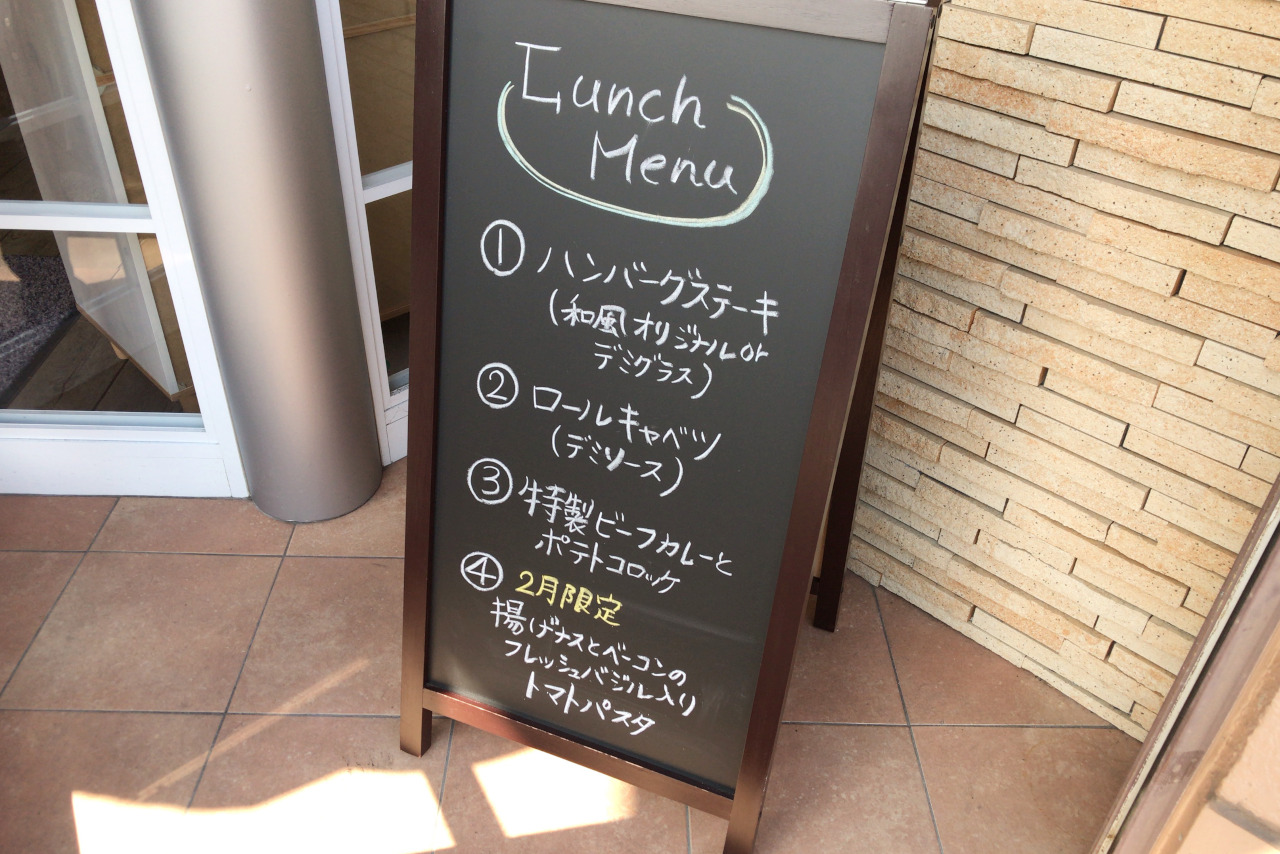 Lunch
Menu
① ハンバーグステーキ
(和風 オリジナル or
デミグラス)
② ロールキャベツ
(デミソース)
③ 特製ビーフカレーと
ポテトコロッケ
④ 2月限定
揚げナスとベーコンの
フレッシュバジル入り
トマトパスタ